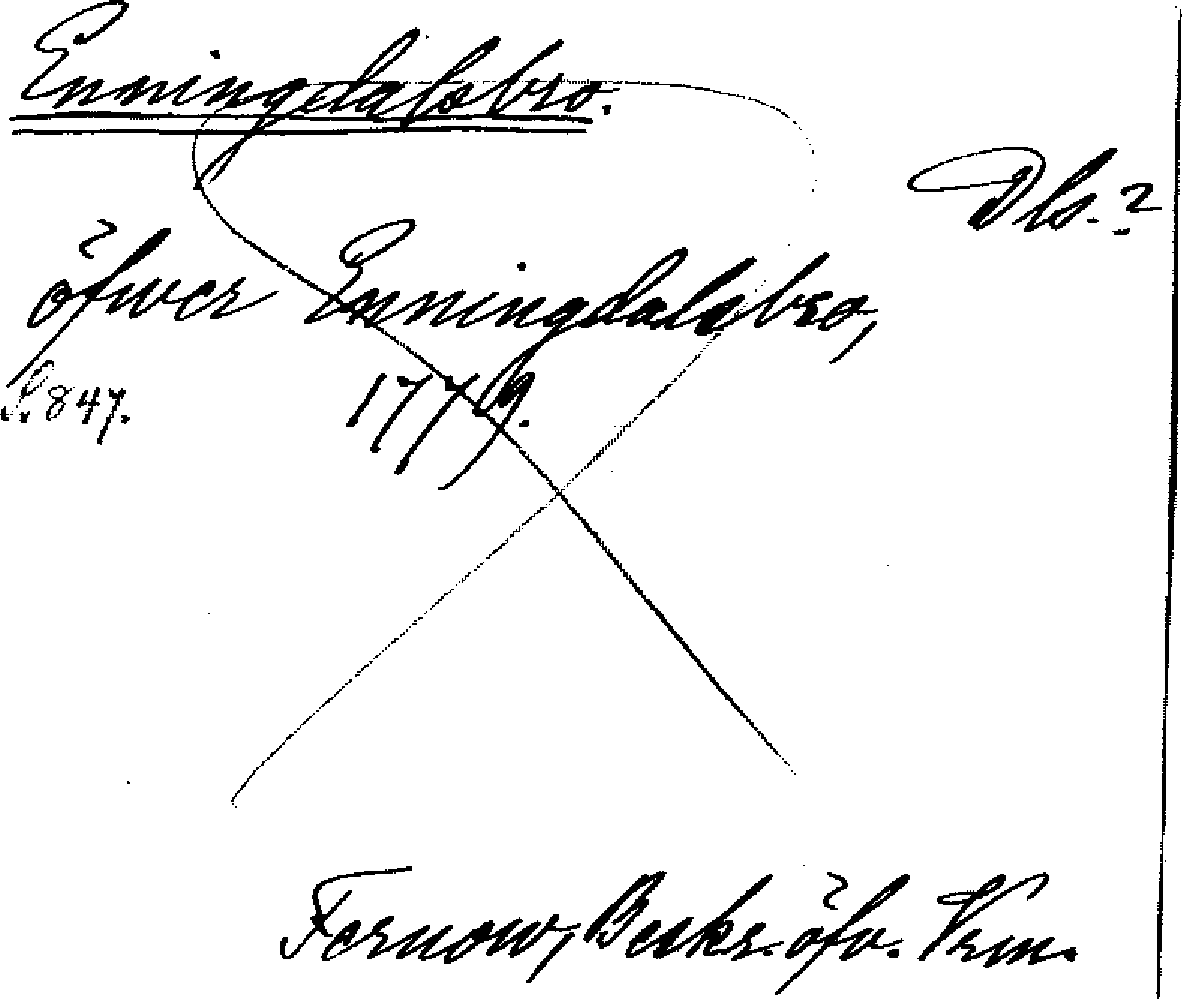 Enningdalsbro.
Dls.?
öfwer Enningdalsbro,
S. 847. 1779.
Fernow, Beskr. öfv. Vrm.